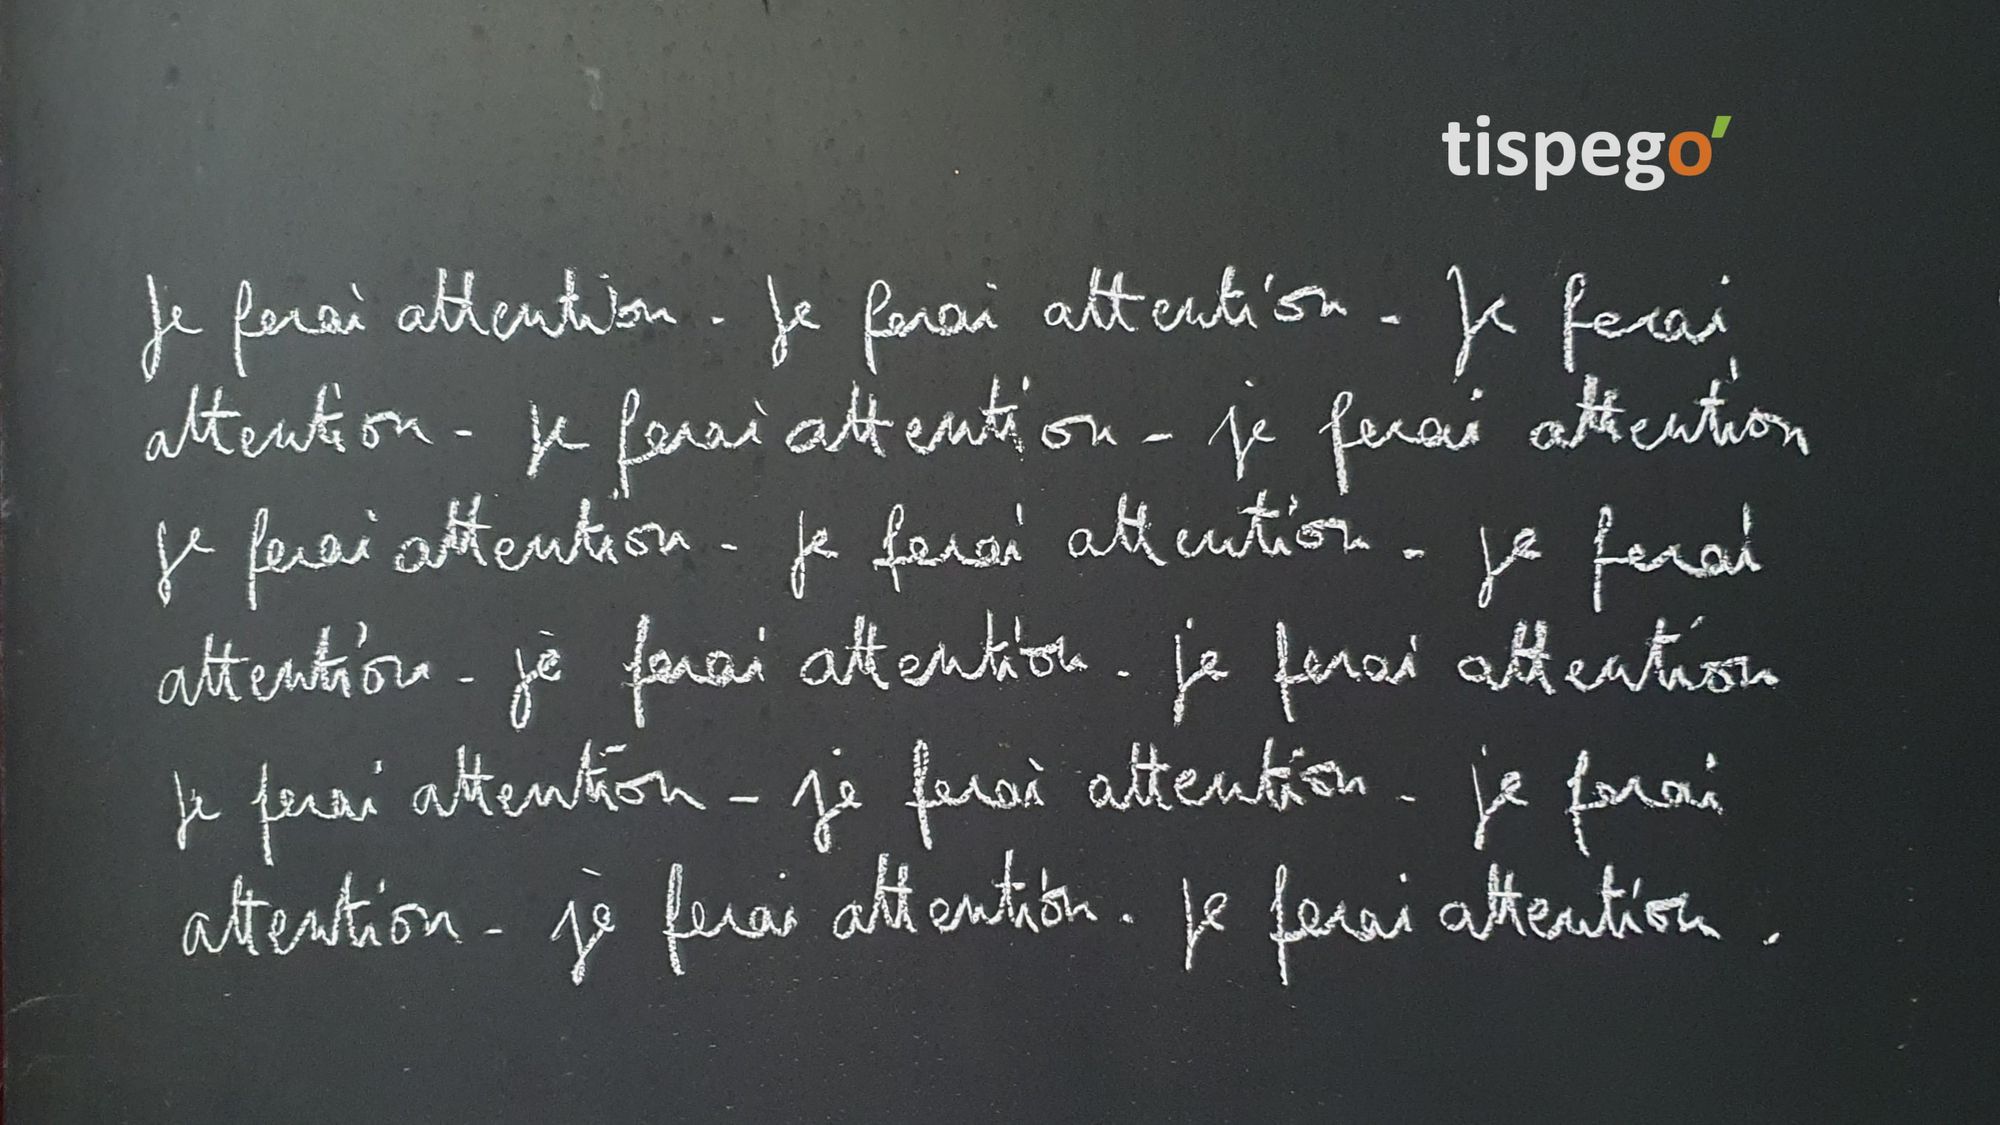 tispego'
Je ferai attention - Je ferai attention - Je ferai
attention - Je ferai attention - je ferai attention
je ferai attention - je ferai attention - je ferai
attention - je ferai attention - je ferai attention
je ferai attention - je ferai attention - je ferai
attention - je ferai attention - je ferai attention .